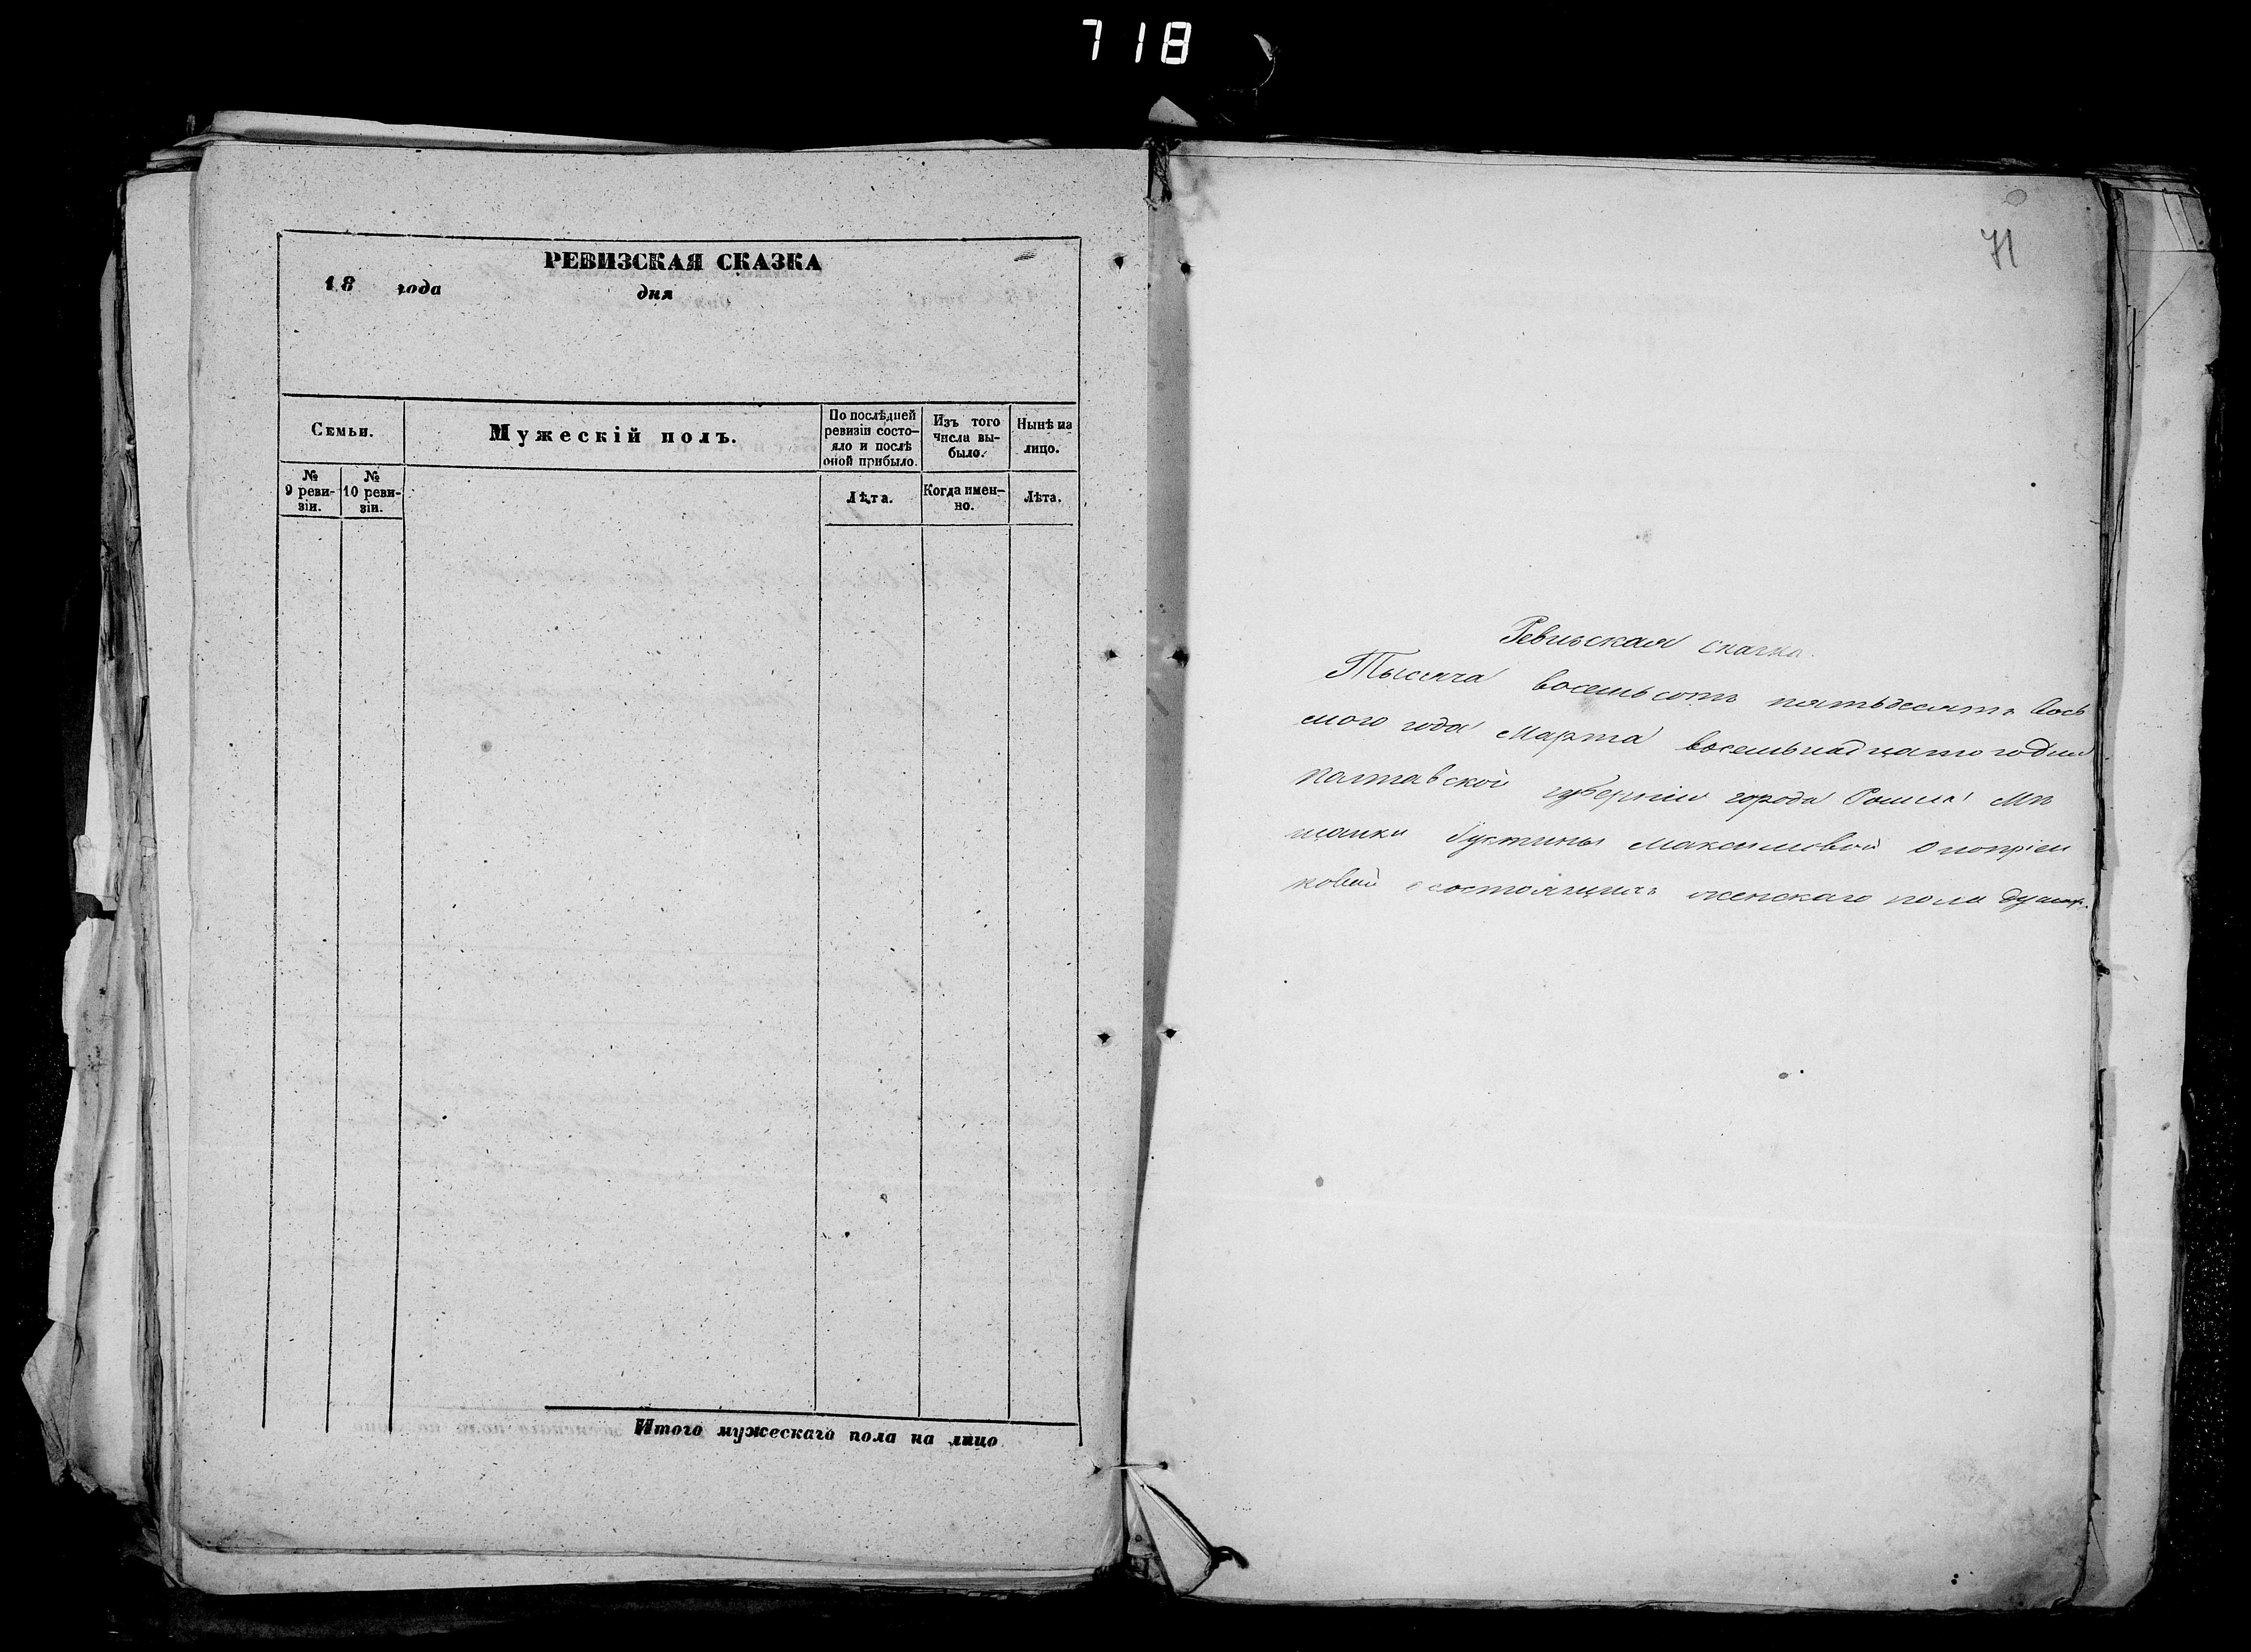 718
РЕВИЗСКАЯ СКАЗКА
18 года дня
Семьи.
Мужескій полъ.
По послѣдней
ревизіи состо-
яло и послѣ
оной прибыло.
Изъ того
числа вы-
было.
Нынѣ на
лицо.
№
9 реви-
зіи.
№
10 реви-
зіи.
Лѣта.
Когда имен-
но.
Лѣта.
Итого мужескаго пола на лицо
71
Ревизская сказка.
Тысяча восемьсотъ пятьдесятъ вось
мого года Марта восемьнадцатого дня
Полтавской губерніи города Ромна Мѣ
щанки Устиньи Максимовой
состоящихъ женскаго пола